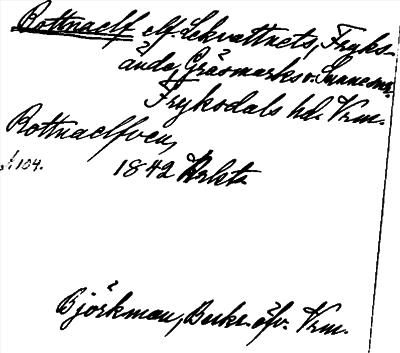 Rottnaelf elf Lekvattnets, Fryks-
ände, Gräsmarks o. Sunne snr.
Fryksdals hd. Vrm.
Rottnaelfven,
s. 104. 1842
Björkman, Beskr. öfv. Vrm.